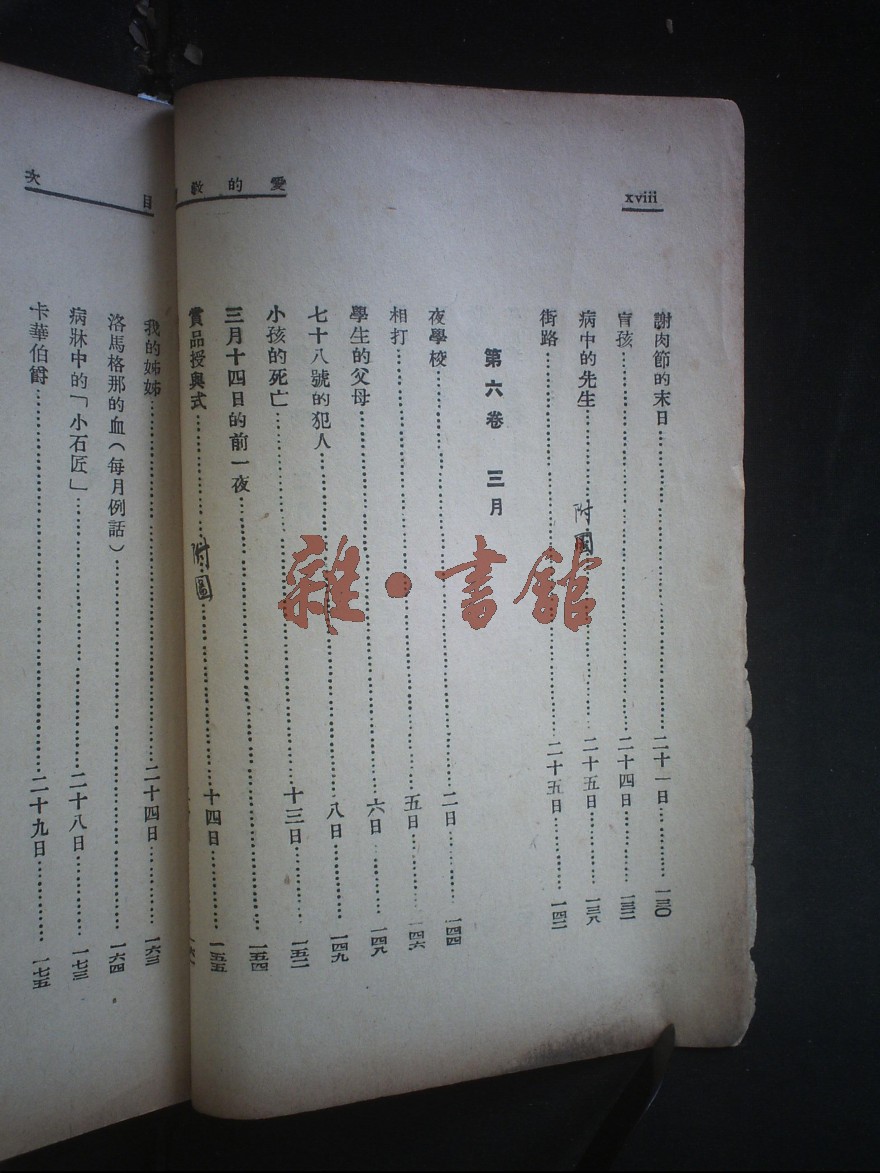 xviii
愛的教
謝肉節的末日……二十一日……一三〇
盲孩……二十四日……一三二
病中的先生……附圖……二十五日……一三八
街路……二十五日……一四二
第六卷 三月
夜學校……二日……一四四
相打……五日……一四六
學生的父母……六日……一四八
七十八號的犯人……八日……一四九
小孩的死亡……十三日……一五二
三月十四日的前一夜……一五四
賞品授與式……附圖……十四日……一五五
目次
我的姊姊……二十四日……一六三
洛馬格那的血(每月例話)……一六四
病牀中的「小石匠」……二十八日……一七三
卡華伯爵……二十九日……一七五
雜·書館